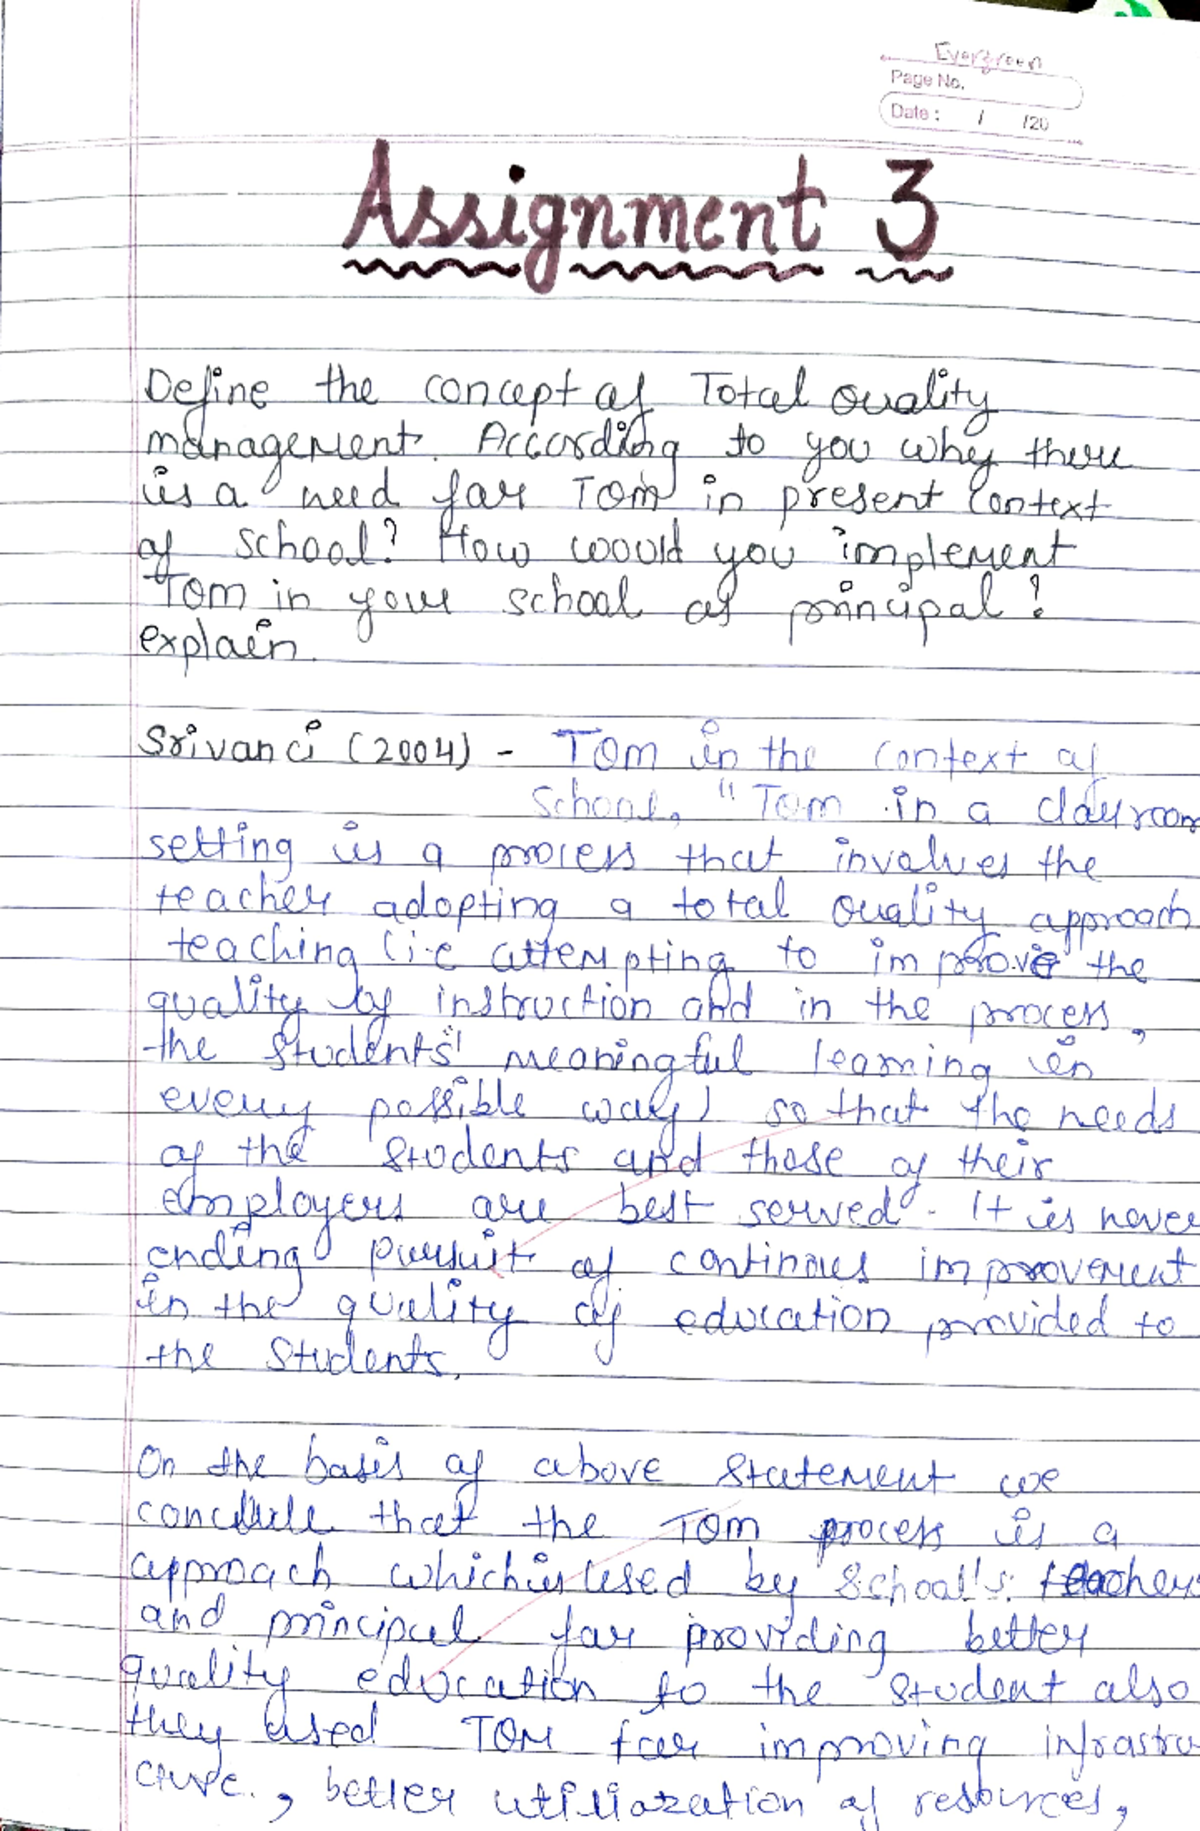 Evergreen
Page No.
Date : / /20
Assignment 3
Define the concept of Total Quality
management. According to you why there
is a need for TQM in present context
of school? How would you implement
TQM in your school as principal?
explain.
Srivanci (2004) - TQM in the context of
School, "TQM in a classroom
setting is a process that involves the
teacher adopting a total quality approach
teaching (i.e attempting to improve the
quality of instruction and in the process,
the students' meaningful learning in
every possible way) so that the needs
of the students and those of their
employers are best served. It is never
ending pursuit of continues improvement
in the quality of education provided to
the students.
On the basis of above statement we
conclude that the TQM process is a
approach which is used by School's teachers
and principal for providing better
quality education to the student also
they used TQM for improving infrastru
cture., better utiliazation of resources,